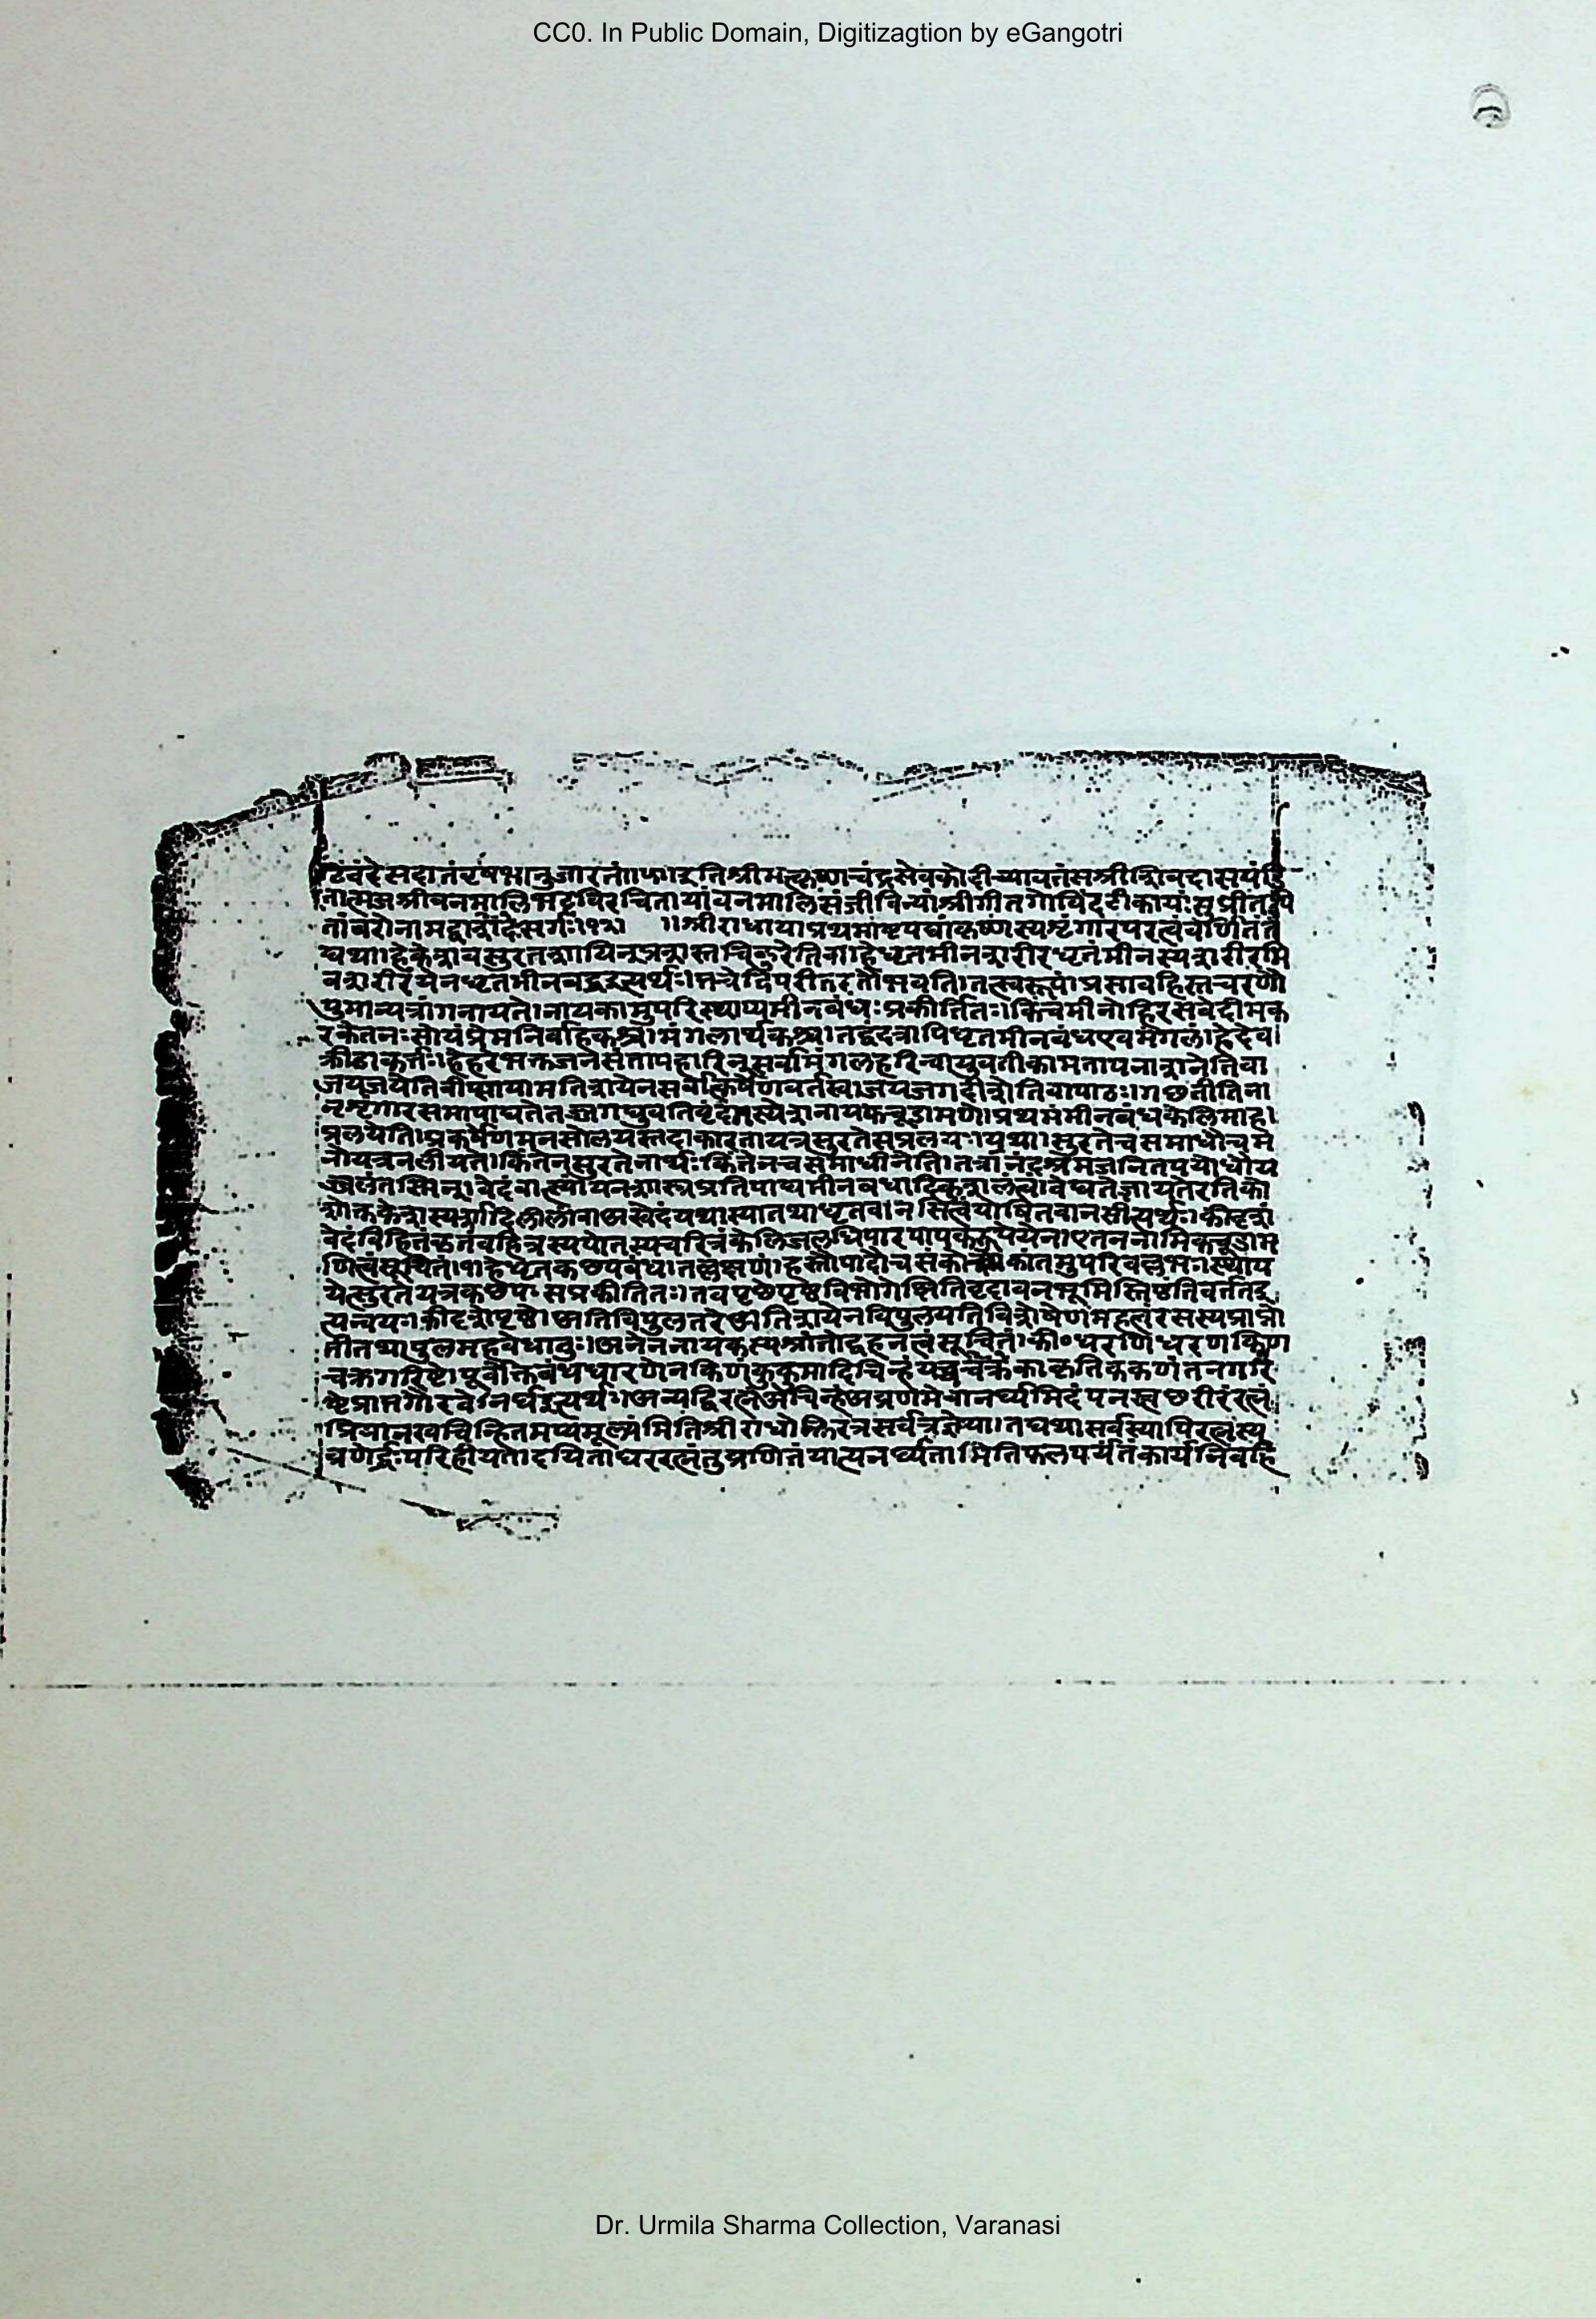 CC0. In Public Domain, Digitizagtion by eGangotri
वंदे सदा तं वृषभानुजारतं ॥ इति श्रीमत्कृष्णचंद्रसेवकोदीच्यावतंसश्रीशिवदासपंडि
तात्मजश्रीवनमालिभट्टविरचितायां वनमालिसंजीविन्यां श्रीगीतगोविंदटीकायां सुप्रीतपी
तांबरो नाम द्वादशः सर्गः ॥१२॥ ॥श्रीराधाया प्रथमाष्टपद्यां कृष्णस्य शृंगारपरत्वं वर्णितं त
द्यथा। हे केशव सुरतशायिन् प्रशस्तचिकुरेति वा। हे धृतमीनशरीर धृतं मीनस्य शरीरमि
व शरीरं येन धृतमीनबद्ध इत्यर्थः। भवेद्विपरीतरतो भवति। तत्स्वरूपं। प्रसार्य हस्तचरणौ
पुमान्यत्रांगनायते। नायकामुपरिस्थाप्य मीनबंधः प्रकीर्तितः। किंच मीनो हि रसवेदी मक
रकेतनः सोयं प्रेमनिर्वाहकश्च। मंगलार्थकश्च। तद्वदत्रापि धृतमीनबंध एव मंगलं। हे देव।
क्रीडाकर्त्तः। हे हरे भक्तजनसंतापहारिन् सर्वामंगलहरिन्वा युवतीकामतापनाशनेति वा
जयजयेति वीप्सायामतिशयेन सर्वोत्कर्षेण वर्तस्व। जयजगदीशेति वा पाठः। गच्छतीति वा
न् शृंगारसमापाद्यते तज्जगद्युवतिवृंदं तस्येश नायकचूडामणे। प्रथमं मीनबंधकेलिमाह।
प्रलयेति। प्रकर्षेण मनसो लयस्तदाकारता यत्र सुरते स प्रलयः। यथा। सुरते च समाधौ च म
नो यत्र न लीयते। किं तेन सुरतेनार्थः किं तेन च समाधिनेति। तत्रानंदश्रमजनित पयोधौ य
ज्जलं तस्मिन्। वेदं वात्स्यायनशास्त्रप्रतिपाद्य मीनबंधादिकुशलत्वं। वेद्यते ज्ञायते रतिको
तथा धृतवानसि त्वं योषितवानसीत्यर्थः। कीदृशं
वेदं विहितं कृतं वहित्रस्य पोतस्य चरित्रं केलिजलधिपार
णित्वं सूचितं ॥१॥ हे धृतकच्छपबंध। तल्लक्षणं। हस्तौ पादौ च संकोच्य कांतमुपरि वल्लभः। स्थाय
येत्सुरतं यत्र कच्छपः स प्रकीर्तितः। तव पृष्ठे पृष्ठविभागे क्षितिवृंदावनभूमिस्तिष्ठति वर्तत इ
त्यन्वयः। कीदृशे पृष्ठे। अतिविपुलतरे अतिशयेन विपुलयति विशेषेण महत्वं रसस्य प्राप्नो
तीति तथा पुलमहत्वे धातुः। अनेन नायकस्य श्रांतोद्वहनत्वं सूचितं। की॰ धरणिधरणकिण
चक्रगरिष्ठे। पूर्वोक्तबंधधारणेन किण कुंकुमादिचिन्हं यच्च चक्रं चक्राकृतिकंकणं तेन गरि
ष्ठे प्राप्तगौरवे। नर्घ इत्यर्थः। अन्यद्धि रत्नं अचिन्हं अव्रणमेवानर्घ्यमिदं पुनस्त्वच्छरीरं रत्नं
प्रियानखचिन्हितमप्यमूल्यमिति श्रीराधोक्तिरत्र सर्वत्र ज्ञेया। तद्यथा सर्वस्यापि रत्नस्य
व्रणैर्द्युः परिहीयते। दयिताधररत्नं तु व्रणितं यात्यनर्घ्यतामिति फलपर्यंतं कार्यनिर्वाहे
Dr. Urmila Sharma Collection, Varanasi